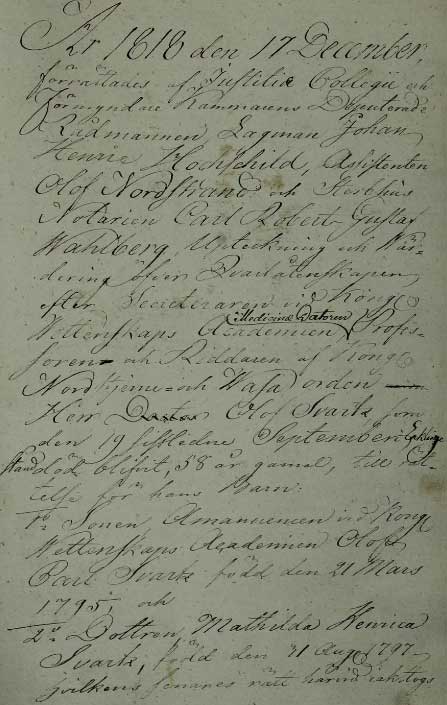 År 1818 den 17 December,
förrättades af Justitiæ Collegii och
Förmyndare Kammarens Deputerade
Rådmannen, Lagman Johan
Henric Hochschild, Assistenten
Olof Nordstrand och Sterbhus
Notarien Carl Robert Gustaf
Wahlberg, Upteckning och Wär-
dering öfver Qvarlåtenskapen
efter Secreteraren vid Kongl
Medicinæ Doctoren
Wettenskaps Academien, Profes-
soren och Riddaren af Kongl
Nordstjerne och Wasa orden
Herr Olof Svartz som
den 19 sistledne September i Enklinge
stånd död blifvit, 58 år gammal, till rät-
telse för hans Barn:
1o Sonen, Amanuensen vid Kongl
Wettenskaps Academien Olof
Carl Svartz född den 21 Mars
1795, och
2o Dottren, Mathilda Henrica
Svartz, född den 31 Aug 1797
hvilkens senares rätt härvid iakttogs